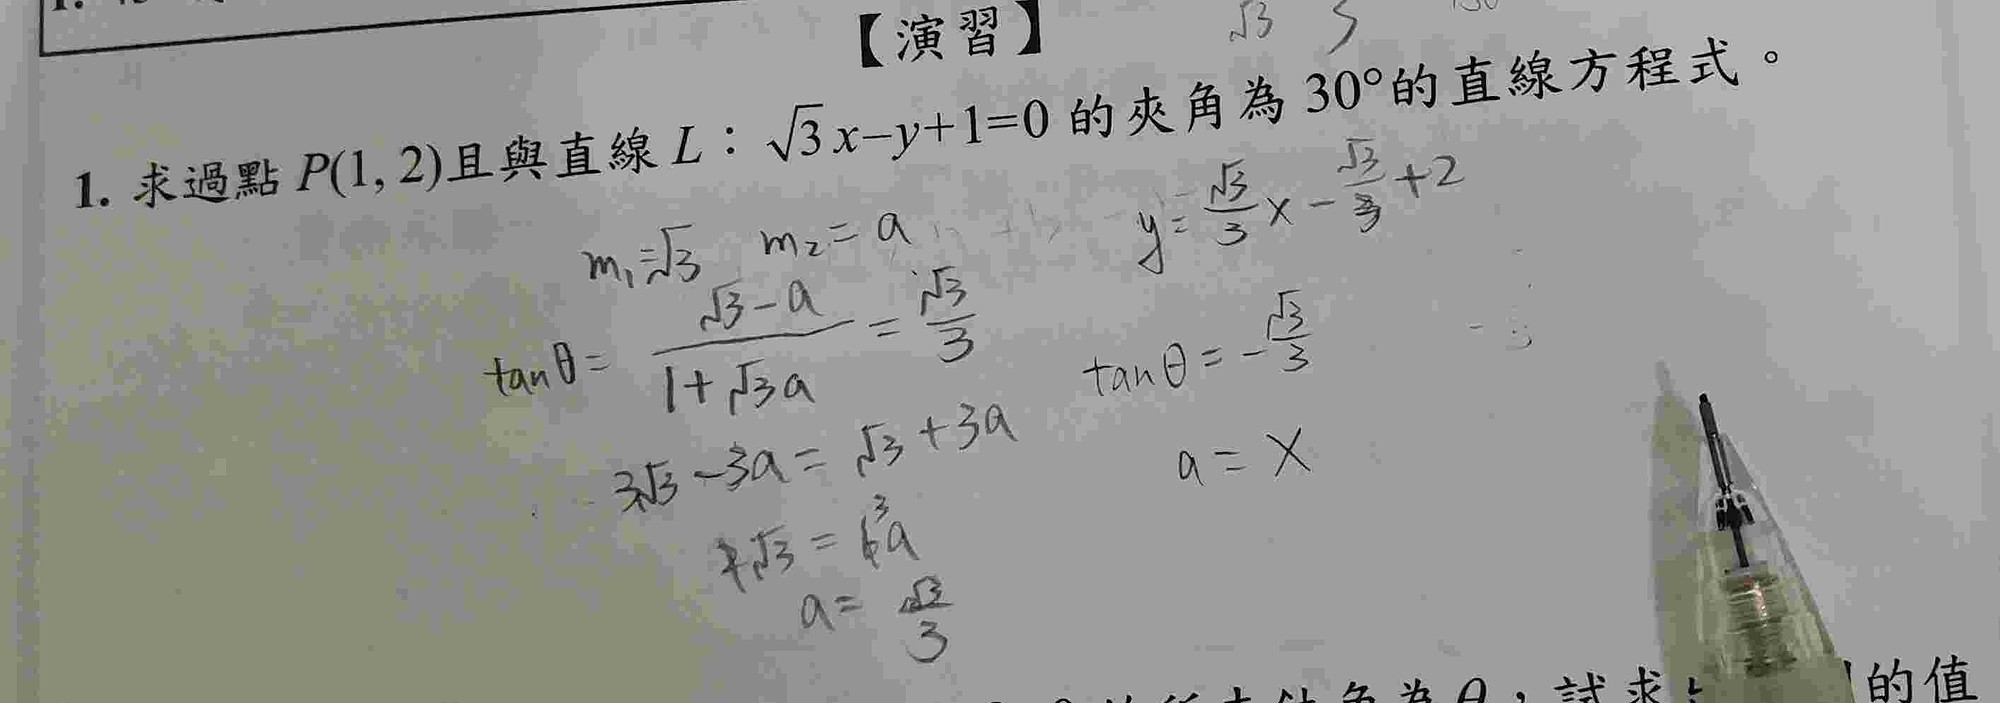 【演習】
√3
1. 求過點 P(1, 2)且與直線 L：√3x−y+1=0 的夾角為 30°的直線方程式。
m₁=√3 m₂=a
y=√3/3 x−√3/3+2
tanθ= (√3−a)/(1+√3a) = √3/3
tanθ=−√3/3
3√3−3a=√3+3a
a=X
a=√3/3
角為θ，試求
的值